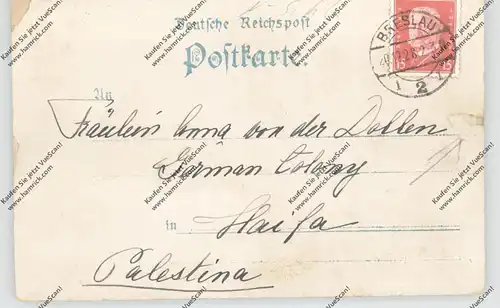 Deutsche Reichspost
Postkarte.
BRESLAU
2
15
15
An
Fräulein Anna von der Dollen
German Colony
in Haifa
Palestina
Kaufen Sie jetzt VueScan!
www.hamrick.com